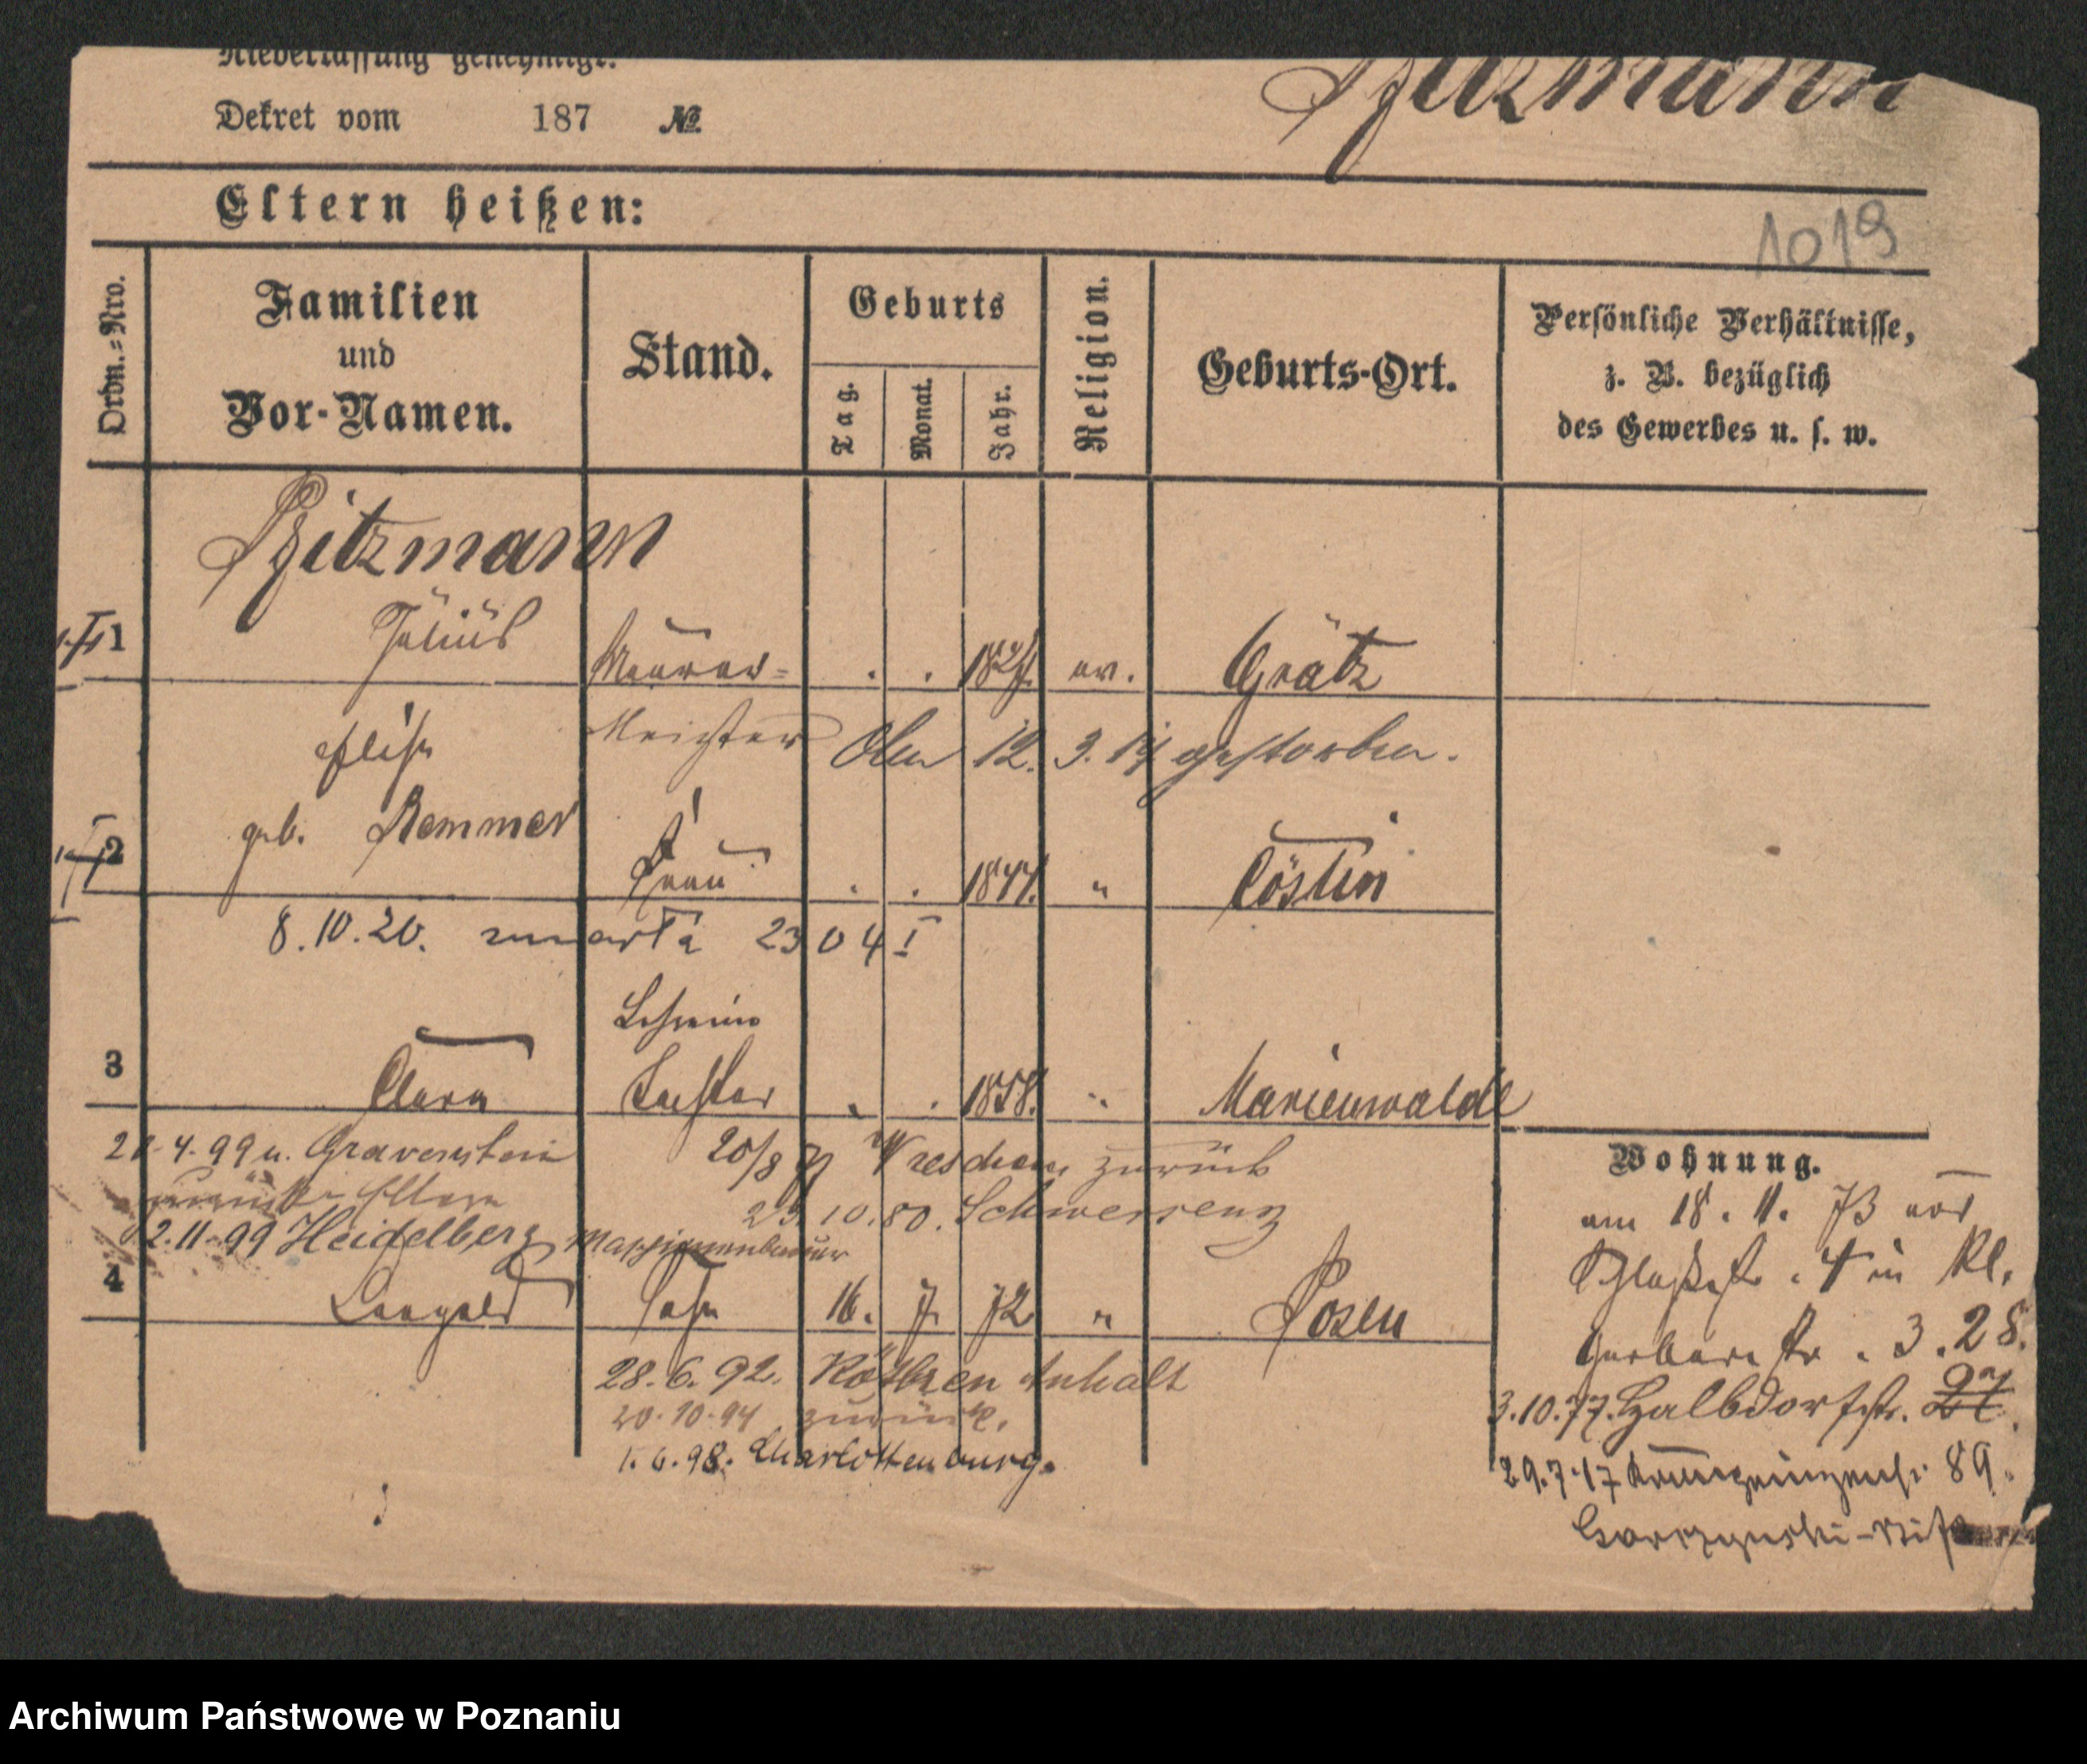 Niederlassung genehmigt.
Dekret vom 187 №
Pfitzmann
Eltern heißen:
1019
Ordn.=Nro.
Familien
und
Vor-Namen.
Stand.
Geburts
Tag.
Monat.
Jahr.
Religion.
Geburts-Ort.
Persönliche Verhältnisse,
z. B. bezüglich
des Gewerbes u. s. w.
Pfitzmann
1 Julius Maurer= . . ev. Grätz
Meister
Am 12. 3. 14 gestorben.
Elise
geb. Remmer
2 Frau . . 1844. " Cöslin
8.10.20. zmarła 2304 I
Lehrerin
3 Clara Tochter . . 1858. " Marienwalde
4.99 n. Gravenstein
20/8 Wreschen zurück
zurück
23.10.80. Schwersenz
2.11.99 Heidelberg
Maschinenbauer
4 Leopold Sohn 16. 7. 72 " Posen
28.6.92. Köthen Anhalt
20.10.94 zurück.
1.6.98. Charlottenburg.
Wohnung.
am 18. 11. 73 von
4 in Kl.
Gerberstr. 3.28.
3.10.77. Halbdorfstr.
29.7.17 Kronprinzenstr. 89.